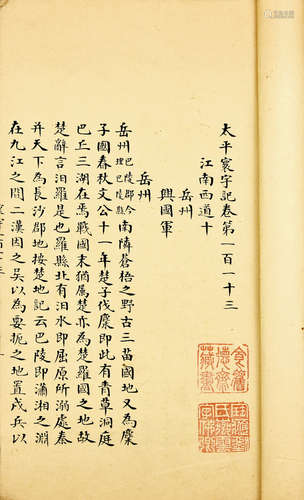 太平寰宇記卷第一百一十三
江南西道十
岳州
興國軍
岳州
岳州巴陵郡今理巴陵縣南隣蒼梧之野古三苗國地又為麋
子國春秋文公十一年楚子伐麋即此有青草洞庭
巴丘三湖在焉戰國末猶屬楚亦為楚羅國之地故
楚辭言汨羅是也羅縣北有汨水即屈原所溺處秦
并天下為長沙郡地按楚地記云巴陵即瀟湘之淵
在九江之間二漢因之吳以為要扼之地置戍兵以